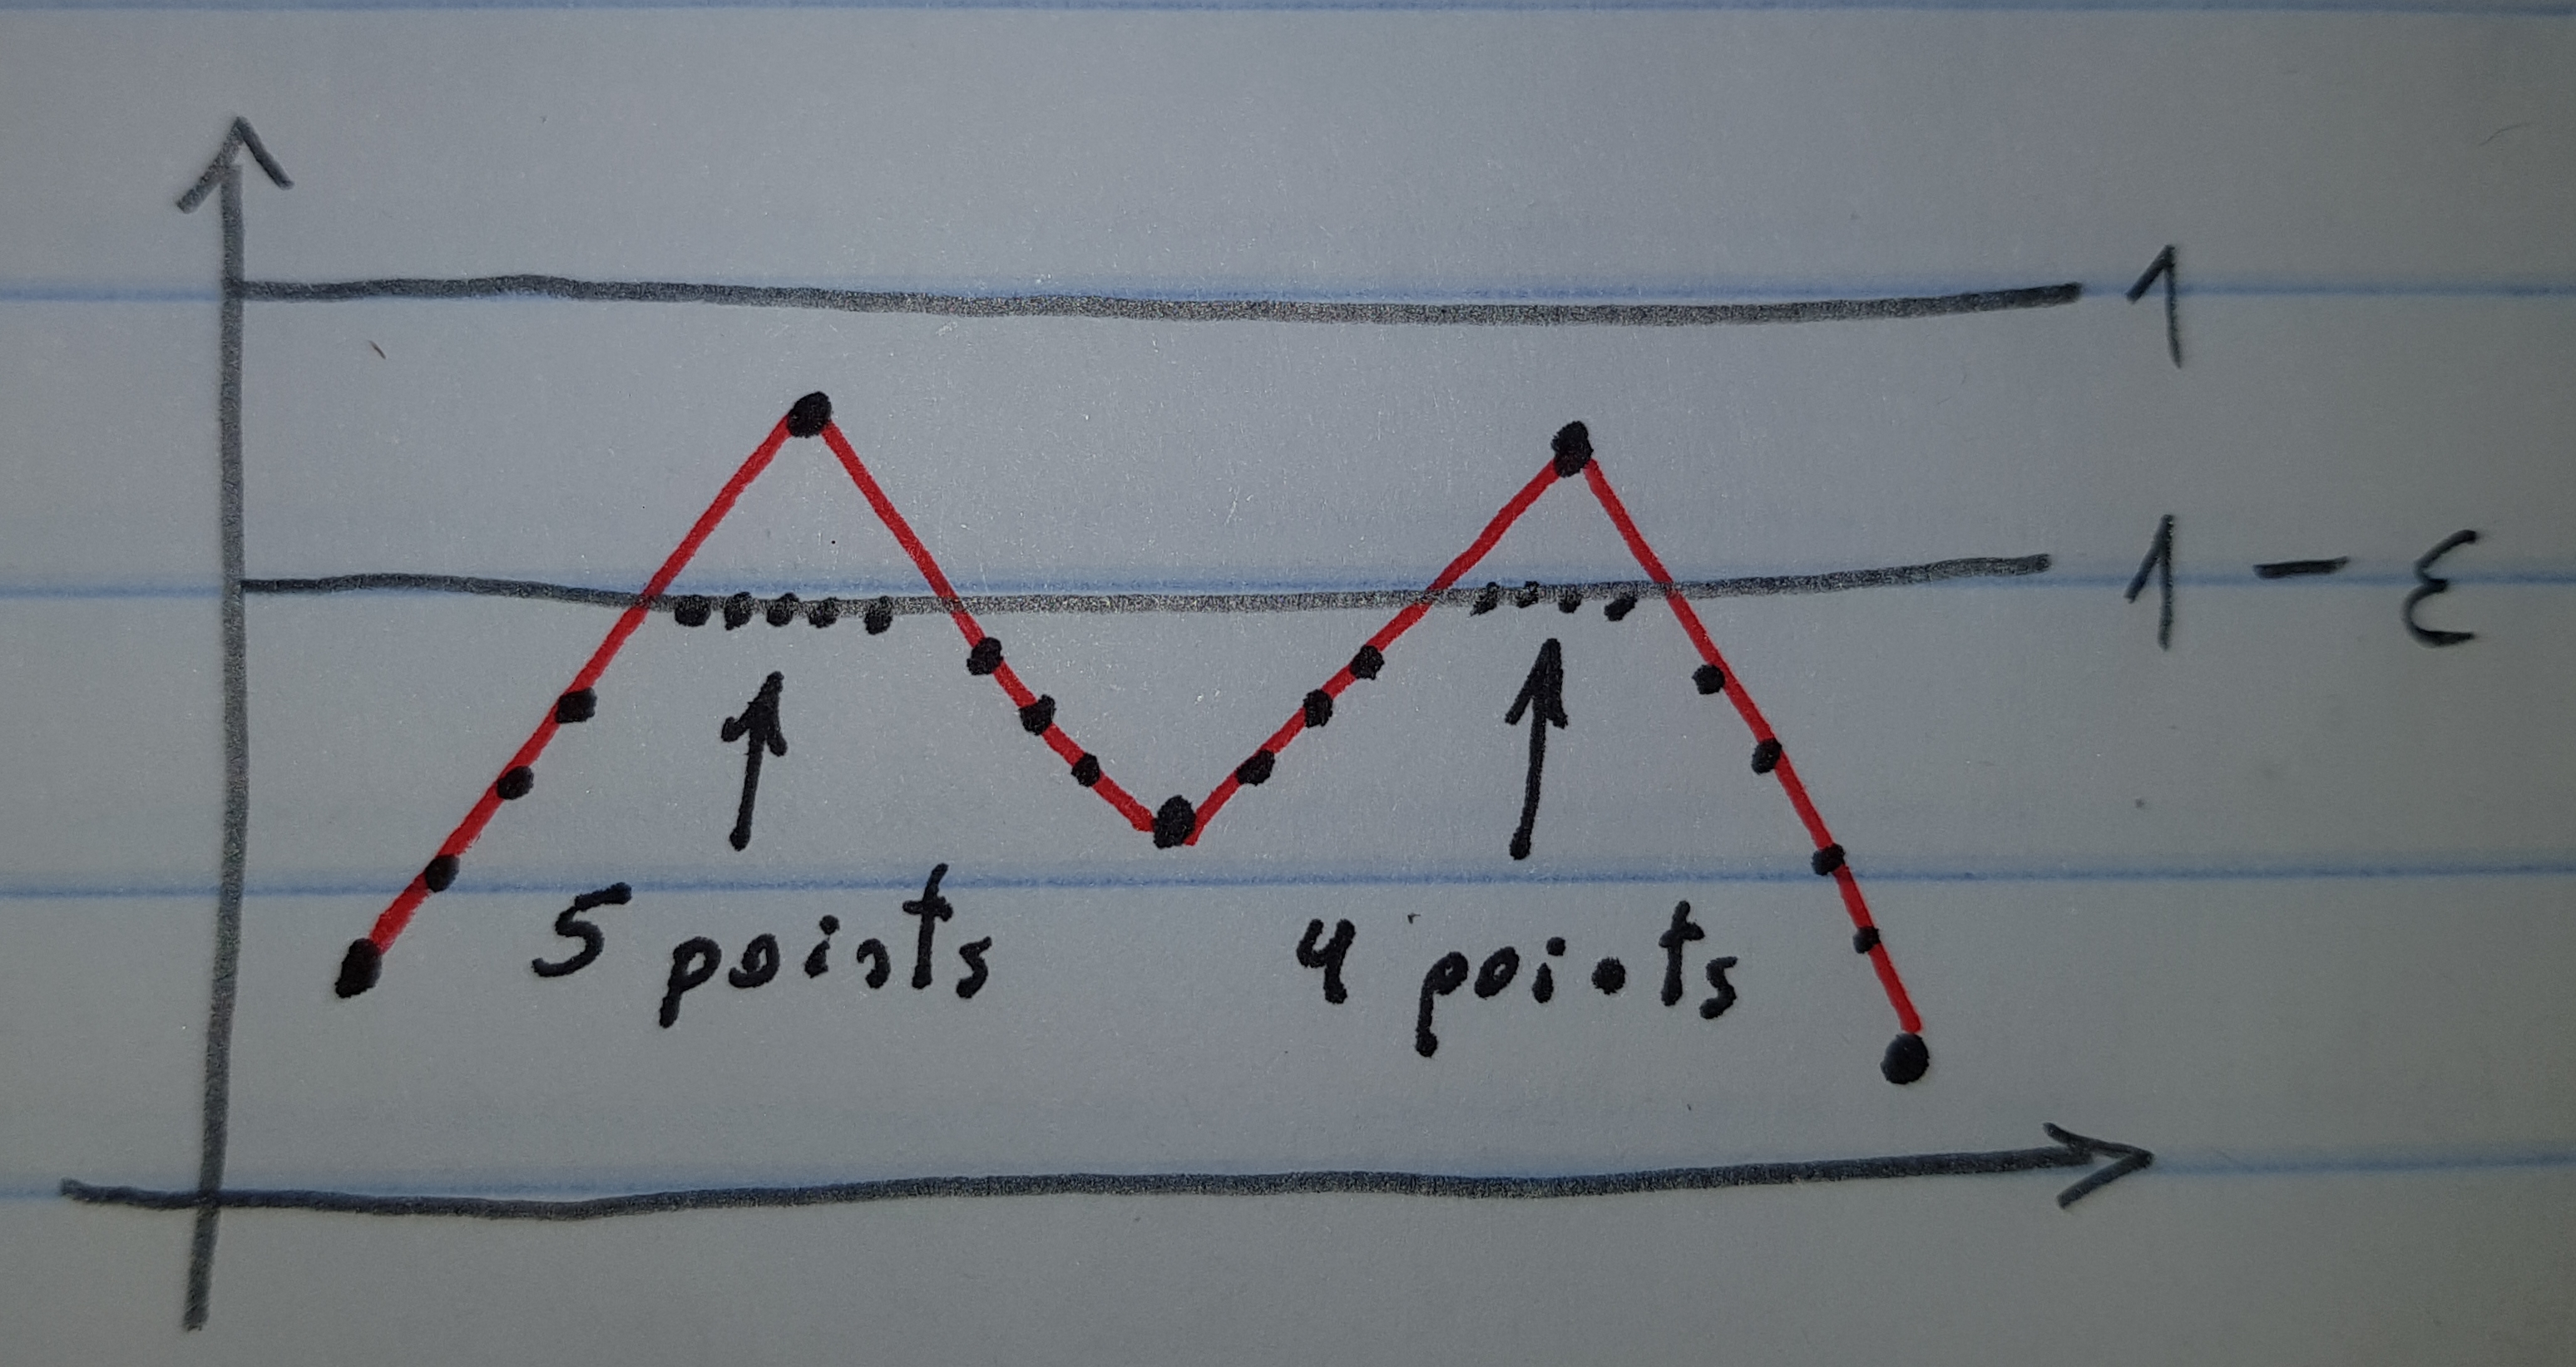 1
1 - ε
5 points
4 points